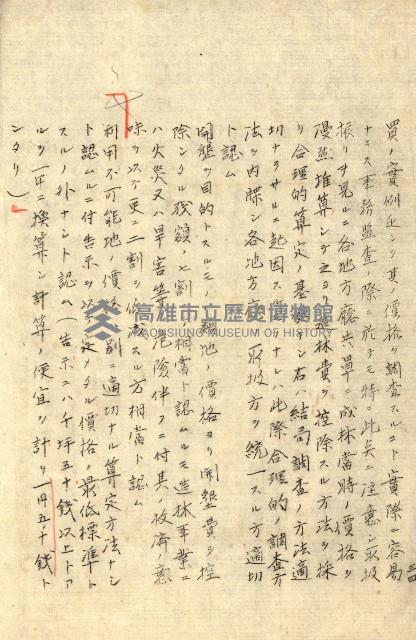 三四
買ノ實例乏シク其ノ價格ヲ調査スルコト實際ニ容易
ナラス事務監査ノ際ニ於テモ特ニ此ノ点ニ注意シ取扱
振リヲ見ルニ各地方廳共單ニ成林當時ノ價格ヲ
漫然推算シ之ヨリ造林費ヲ控除スル方法ヲ採
リ合理的算定ノ基礎ナシ右ハ結局調査ノ方法適
切ナラサルニ起因スルモノナレハ此際合理的ノ調査方
法ヲ内牒シ各地方廳ノ取扱方ヲ統一スル方適切
ト認ム
開墾ヲ目的トスルモノ
粗地ノ價格ヨリ開墾費ヲ控
除シタル殘額ノ七割
相當ト認ムルモ造林事業ニ
ハ火災又ハ旱害等ノ危險伴フニ付其ノ救濟ノ意
味ヲ以テ更ニ二割ヲ低減スル方相當ト認ム
利用不可能地ノ價格ハ別ニ適切ナル算定方法ナシ
ト認ムルニ付告示ヲ以テ定メタル價格ノ最低標準ト
スルノ外ナシト認ム(告示ニハ千坪五十錢以上トア
ルヲ一甲ニ換算シ計算ノ便宜ヲ計リ一円五十錢ト
シタリ)
高雄市立歷史博物館
KAOHSIUNG MUSEUM OF HISTORY